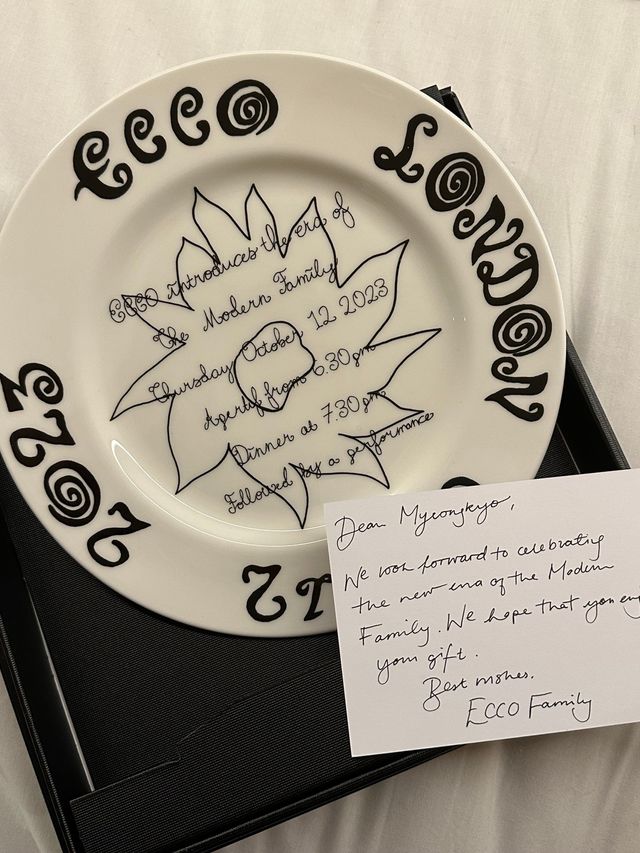 ECCO
LONDON
ECCO introduces the era of
the Modern Family
Thursday October 12 2023
Aperitif from 6.30pm
Dinner at 7.30pm
Followed by a performance
12
2023
Dear Myeongkyo,
We look forward to celebrating
the new era of the Modern
Family. We hope that you
your gift.
Best wishes,
ECCO Family